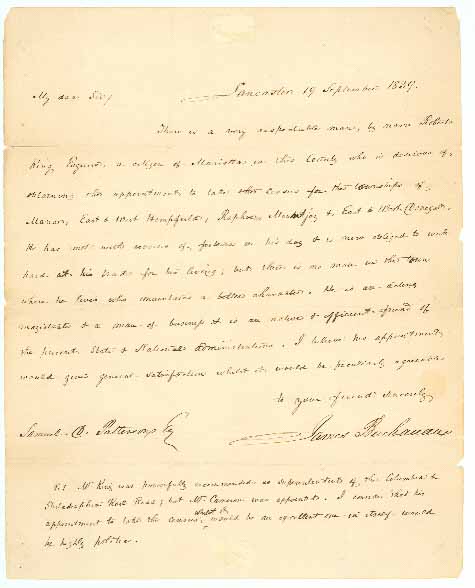 Lancaster 19 September 1839.
My dear Sir/
There is a very respectable man, by name Robert
King Esquire, a citizen of Marietta in this County who is desirous of
obtaining the appointment to take the Census for the townships of
Manor, East & West Hempfield, Rapho, Mountjoy & East & West Donegal.
He has met with reverses of fortune in his day & is now obliged to work
hard at his trade for his living; but there is no man in the town
where he lives who maintains a better character. He is an acting
magistrate & a man of business & is an active & efficient friend of
the present State & National administrations. I believe his appointment
would give general satisfaction whilst it would be peculiarly agreeable
to your friend sincerely
James Buchanan
Samuel D. Patterson Esq
P.S. Mr King was powerfully recommended as superintendent of the Columbia &
Philadelphia Rail Road; but Mr. Cameron was appointed. I consider that his
appointment to take the census, whilst it would be an excellent one in itself would
be highly politic.